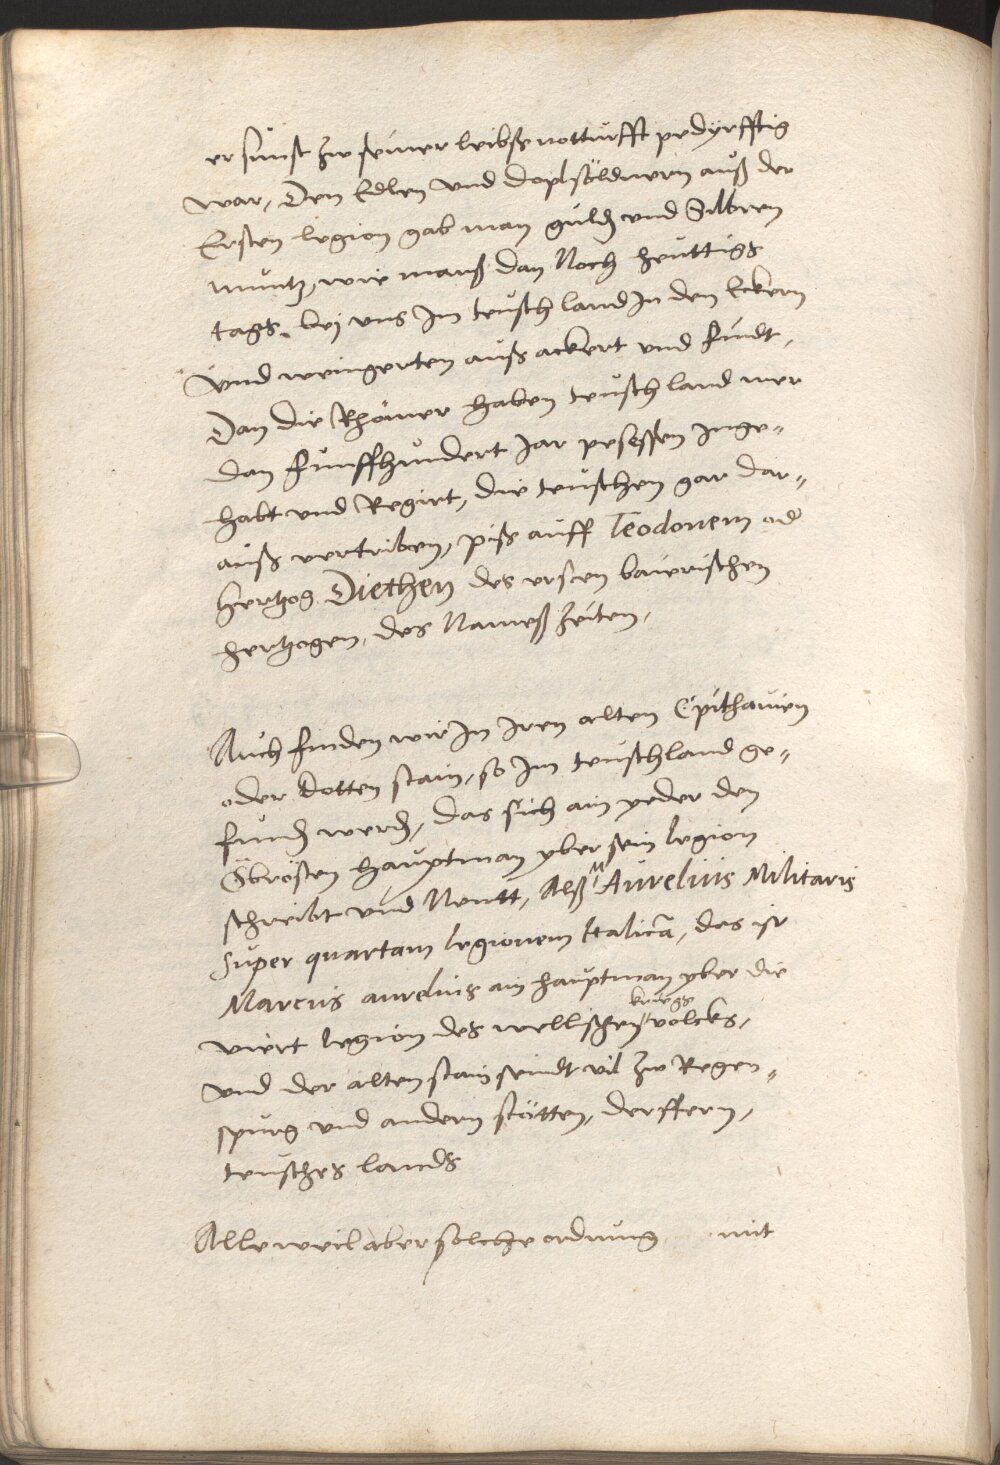 er sunst zw seiner leibß notturfft pedyrfftig
war, Den Edlen vnd doplsöldnern auß der
Ersten legion gab man guld vnd Silbren
muntz, wie manß dan Noch heuttigs
tags, bej vns Im teusch land In den Eckern
Vnd weingerten auß ackert vnd findt,
Dan die Rhömer haben teusch land mer
dan funffhundert Jar pesessen Inge„
habt vnd Regirt, die teuschen gar dar„
auß vertriben, piß auff Teodonem od
hertzog Diethen des ersten bairischen
hertzogen, des Nameß zeiten,
Auch finden wir In Iren alten Epithauien
oder Dotten stain, so Im teuschland ge„
fund werd, das sich ain yeder den
Öbrösten hauptman yber sein legion
schreibt vnd Nentt, Alß M Aurelius Militaris
Super quartam legionem Italicā, das ist
Marcus aurelius ain hauptman yber die
viert legion des wellischen kriegs volcks,
vnd der alten stain seindt vil zw Regen„
spurg vnd andern stötten, derffern,
teusches lands
Alle weil aber solche ordnung mit